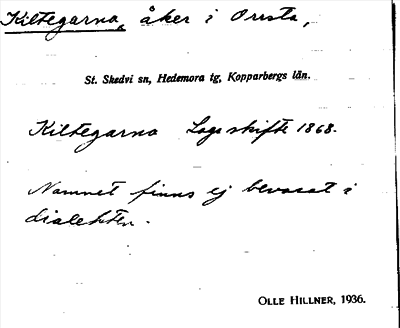 Kiltegarna, åker i Orrsta,
St. Skedvi sn, Hedemora tg, Kopparbergs län.
Kiltegarna Laga skifte 1868.
Namnet finns ej bevarat i
dialekten.
OLLE HILLNER, 1936.